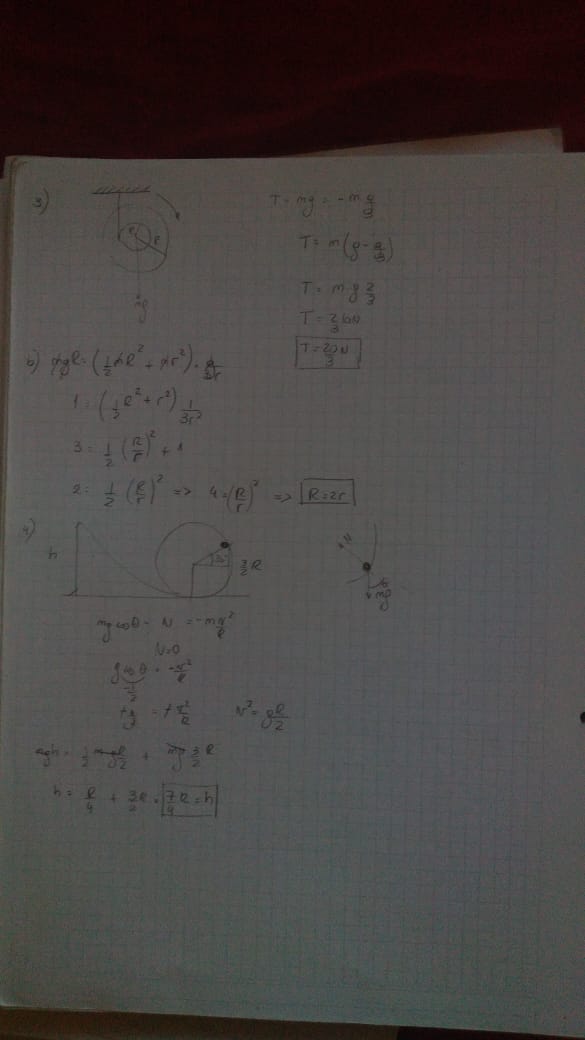 3)
R
r
mg
T - mg = -m g/3
T = m(g - g/3)
T = m g 2/3
T = 2/3 10N
T = 20/3 N
b) mgR = (1/2 mR² + mr²) · g/3r
1 = (1/2 R² + r²) 1/3r²
3 = 1/2 (R/r)² + 1
2 = 1/2 (R/r)² => 4 = (R/r)² => R = 2r
4)
h
30°
3/2 R
N
θ
mg
mg cos θ - N = -m v²/R
N=0
g cos θ = -v²/R
-1/2
+g/2 = +v²/R v² = gR/2
mgh = 1/2 m gR/2 + mg 3/2 R
h = R/4 + 3R/2 = 7/4 R = h